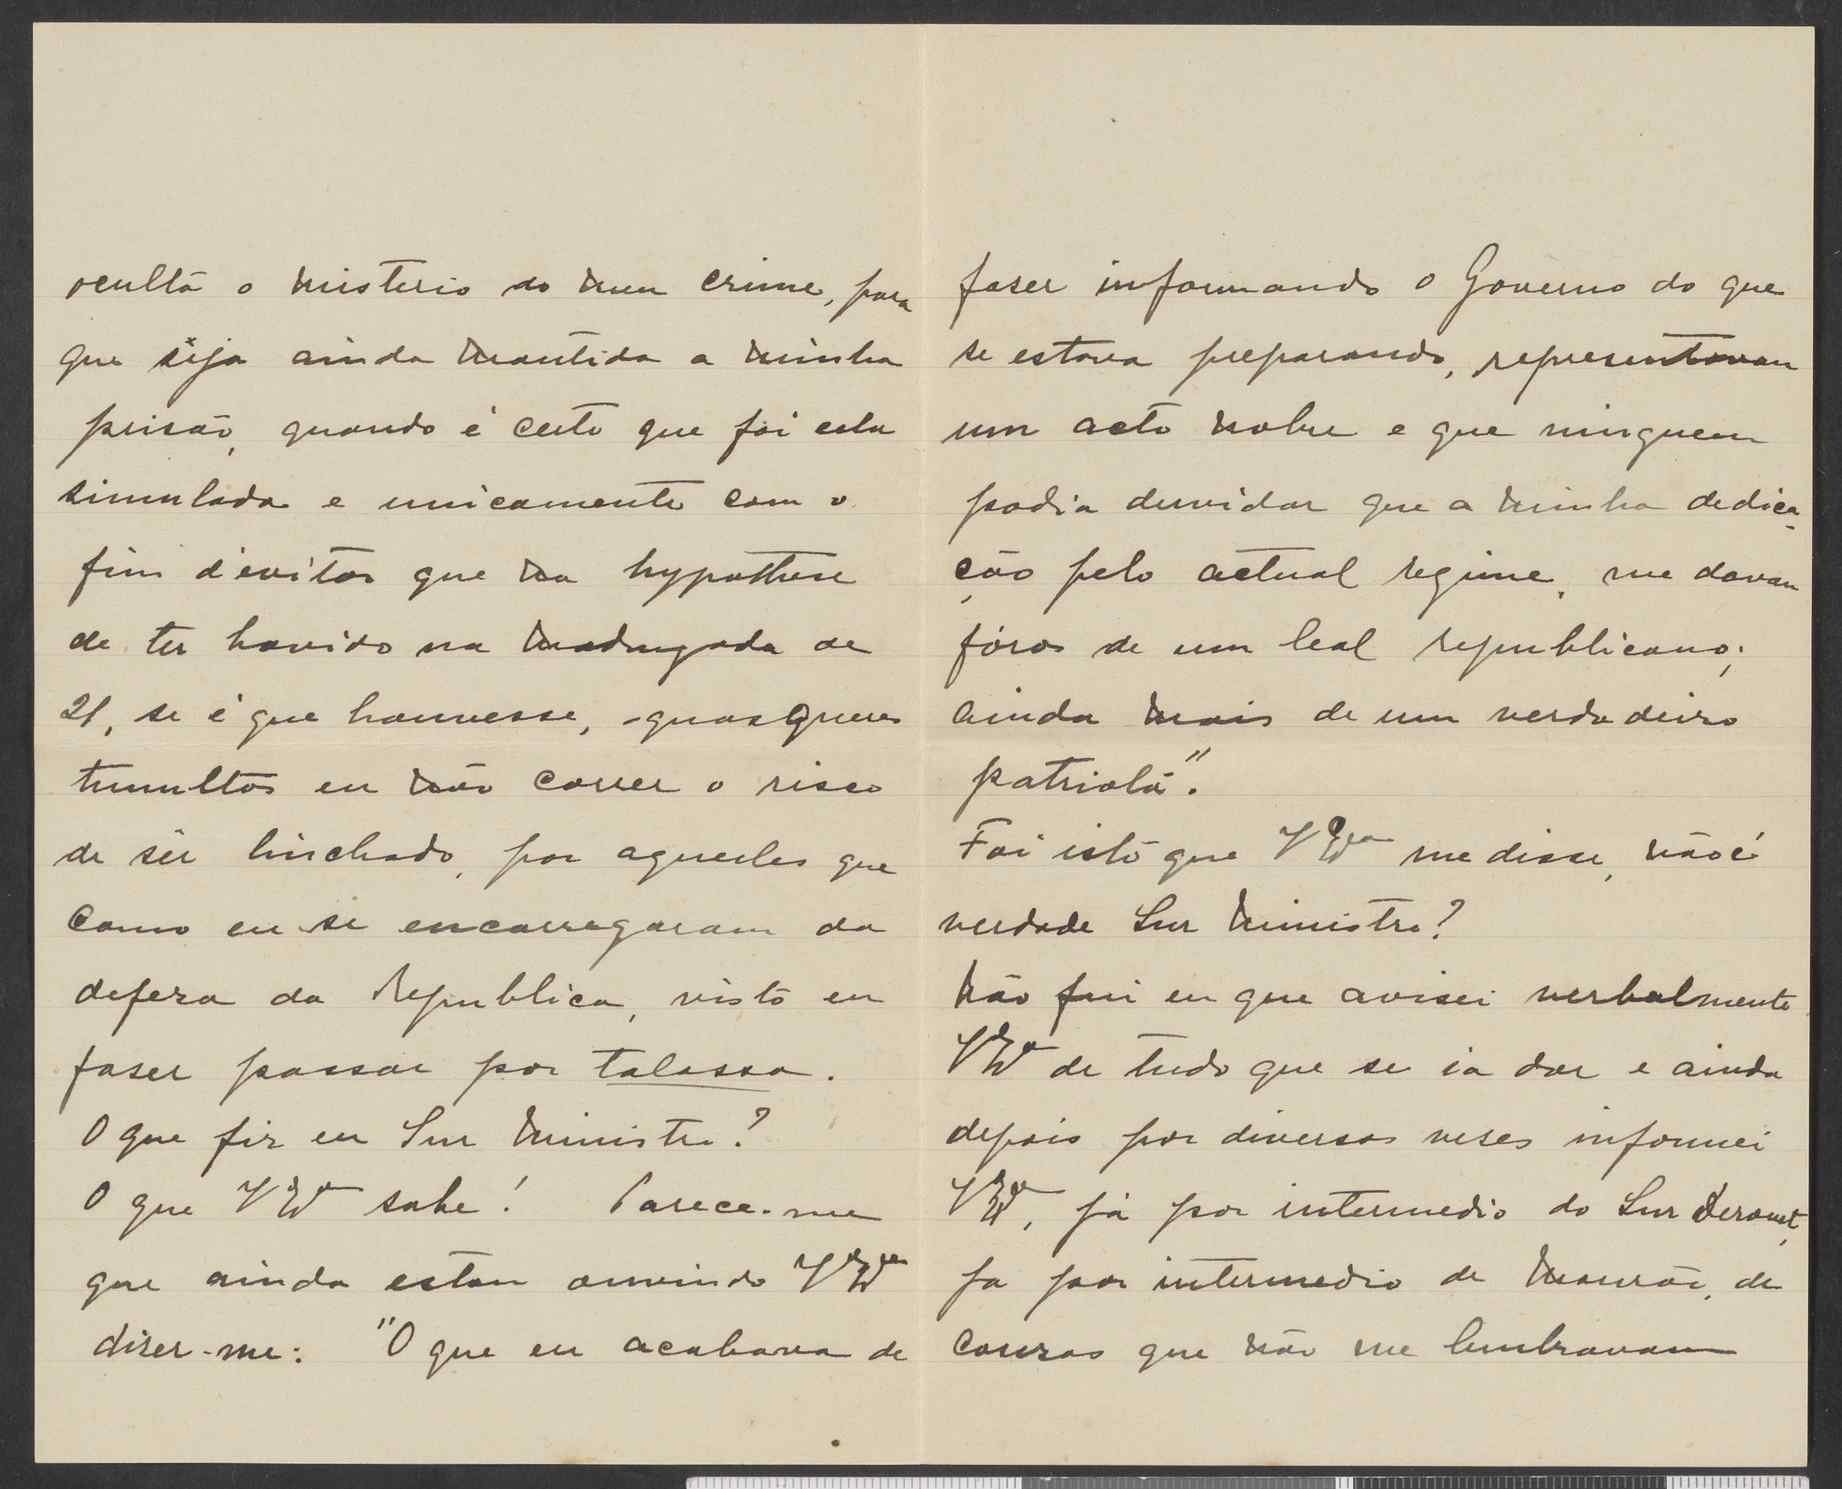 oculto o misterio do meu crime, para
que sêja ainda mantida a minha
prisão, quando é certo que foi esta
simulada e unicamente com o
fim d'evitar que na hypothese
de ter havido na madrugada de
21, se é que houvesse, quasQueres
tumultos eu não correr o risco
de sêr linchado, por aquelles que
como eu se encarregaram da
defeza da Republica, visto eu
faser passar por talassa.
O que fiz eu Snr Ministro?
O que V Exª sabe! Parece-me
que ainda estou ouvindo V Exª
diser-me: "O que eu acabava de
faser informando o Governo do que
se estava preparando, representavam
um acto nobre e que ninguem
podia duvidar que a minha dedica-
ção pelo actual regime, me davam
fóros de um leal republicano;
ainda mais de um verdadeiro
patriota".
Foi isto que V Exª me disse, não é
verdade Snr Ministro?
Não fui eu que avisei verbalmente
V Exª de tudo que se ia dar e ainda
depois por diversas veses informei
V Exª, já por intermedio do Snr Derouet,
ja por intermedio de Mourão, de
couzas que não me lembravam